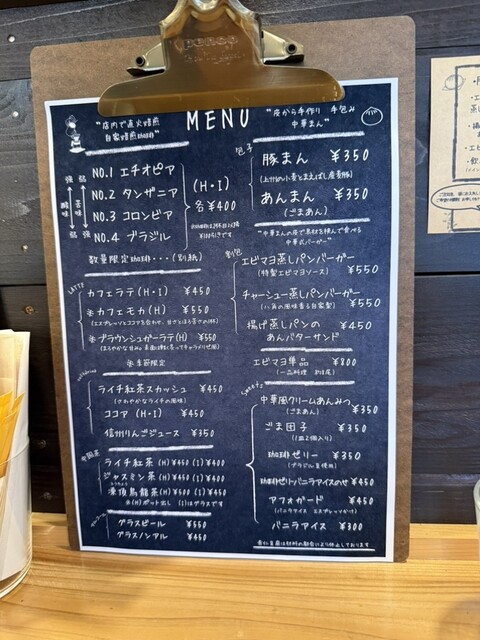 MENU
"店内で直火焙煎
自家焙煎珈琲"
強 弱
酸味 苦味
弱 強
NO.1 エチオピア
NO.2 タンザニア
NO.3 コロンビア
NO.4 ブラジル
(H・I)
各¥400
数量限定珈琲・・・(別紙)
カフェラテ(H・I) ¥450
※カフェモカ(H) ¥550
※ブラウンシュガーラテ(H) ¥550
※季節限定
ライチ紅茶スカッシュ ¥450
(さわやかなライチの風味)
ココア (H・I) ¥450
信州りんごジュース ¥350
中国茶
ライチ紅茶(H)¥450 (I)¥400
ジャスミン茶(H)¥450 (I)¥400
凍頂烏龍茶(H)¥500 (I)¥450
※(H)ポット出し (I)はグラスです
グラスビール ¥550
グラスノンアル ¥450
"皮から手作り 手包み
中華まん"
包子
豚まん ¥350
あんまん ¥350
(ごまあん)
"中華まんの皮で具材を挟んで食べる
中華式バーガー"
割包
エビマヨ蒸しパンバーガー
(特製エビマヨソース) ¥550
チャーシュー蒸しパンバーガー
(八角の風味香る自家製) ¥550
揚げ蒸しパンの ¥450
あんバターサンド
エビマヨ単品 ¥800
Sweets
中華風クリームあんみつ
(ごまあん) ¥350
ごま団子 ¥350
(1皿2個入り)
珈琲ゼリー ¥350
(ブラジル豆使用)
珈琲ゼリーバニラアイスのせ ¥450
アフォガード ¥450
(バニラアイス エスプレッソがけ)
バニラアイス ¥300